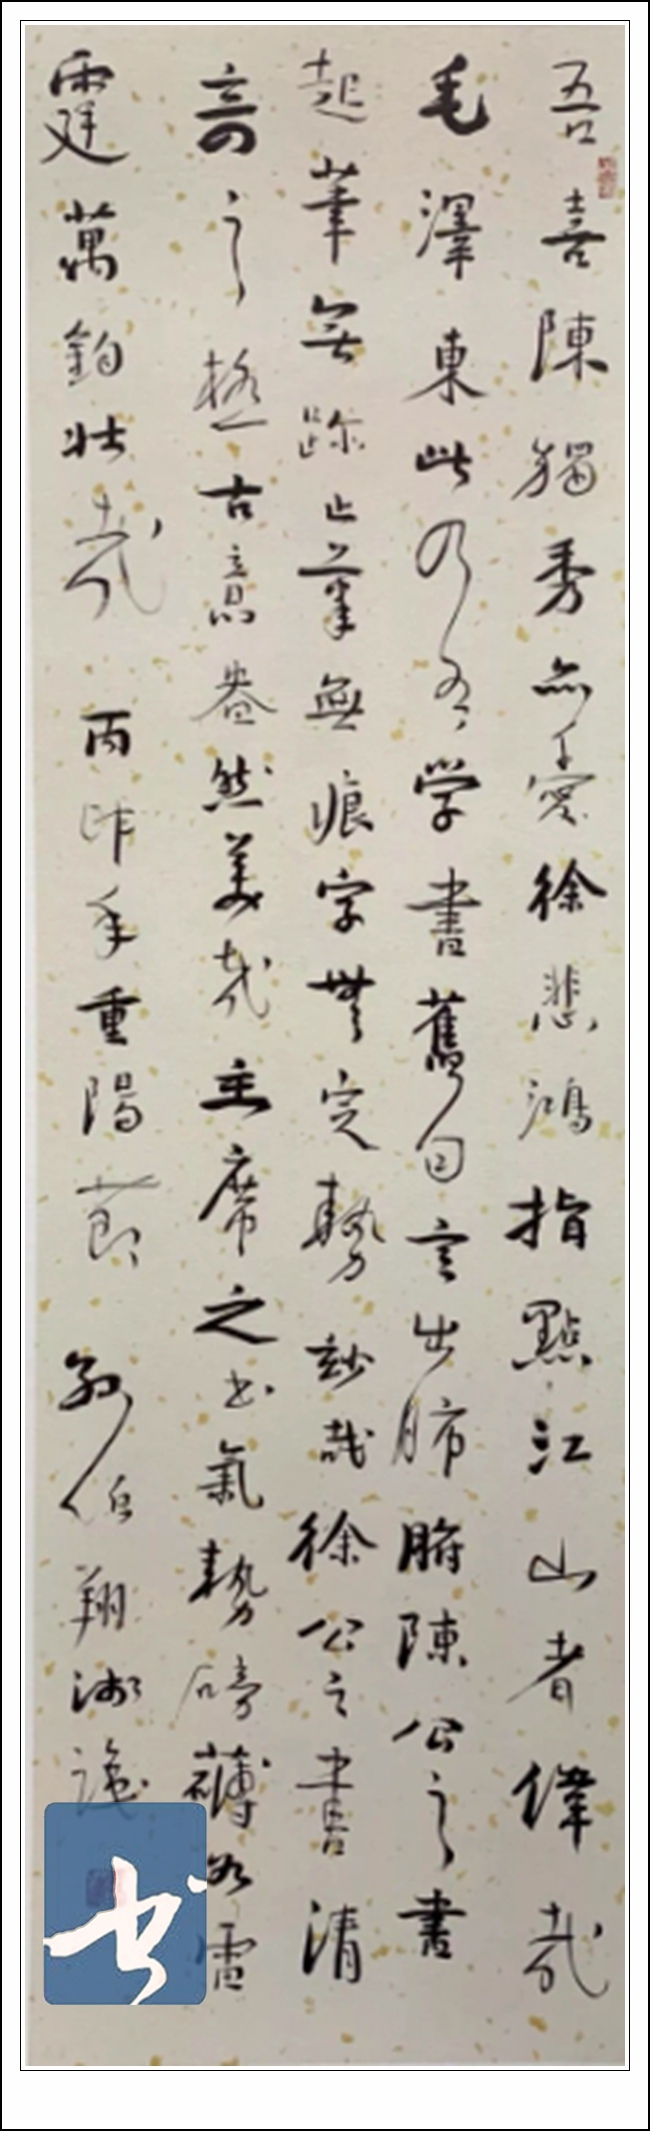 吾喜陳獨秀亦愛徐悲鴻指點江山者偉哉
毛澤東此乃吾学書舊句言出肺腑陳公之書
起筆無踪止筆無痕字無定勢妙哉徐公之書清
奇之極古意盎然美哉主席之书氣勢磅礴如雷
霆萬鈞壮哉 丙申年重陽節
书